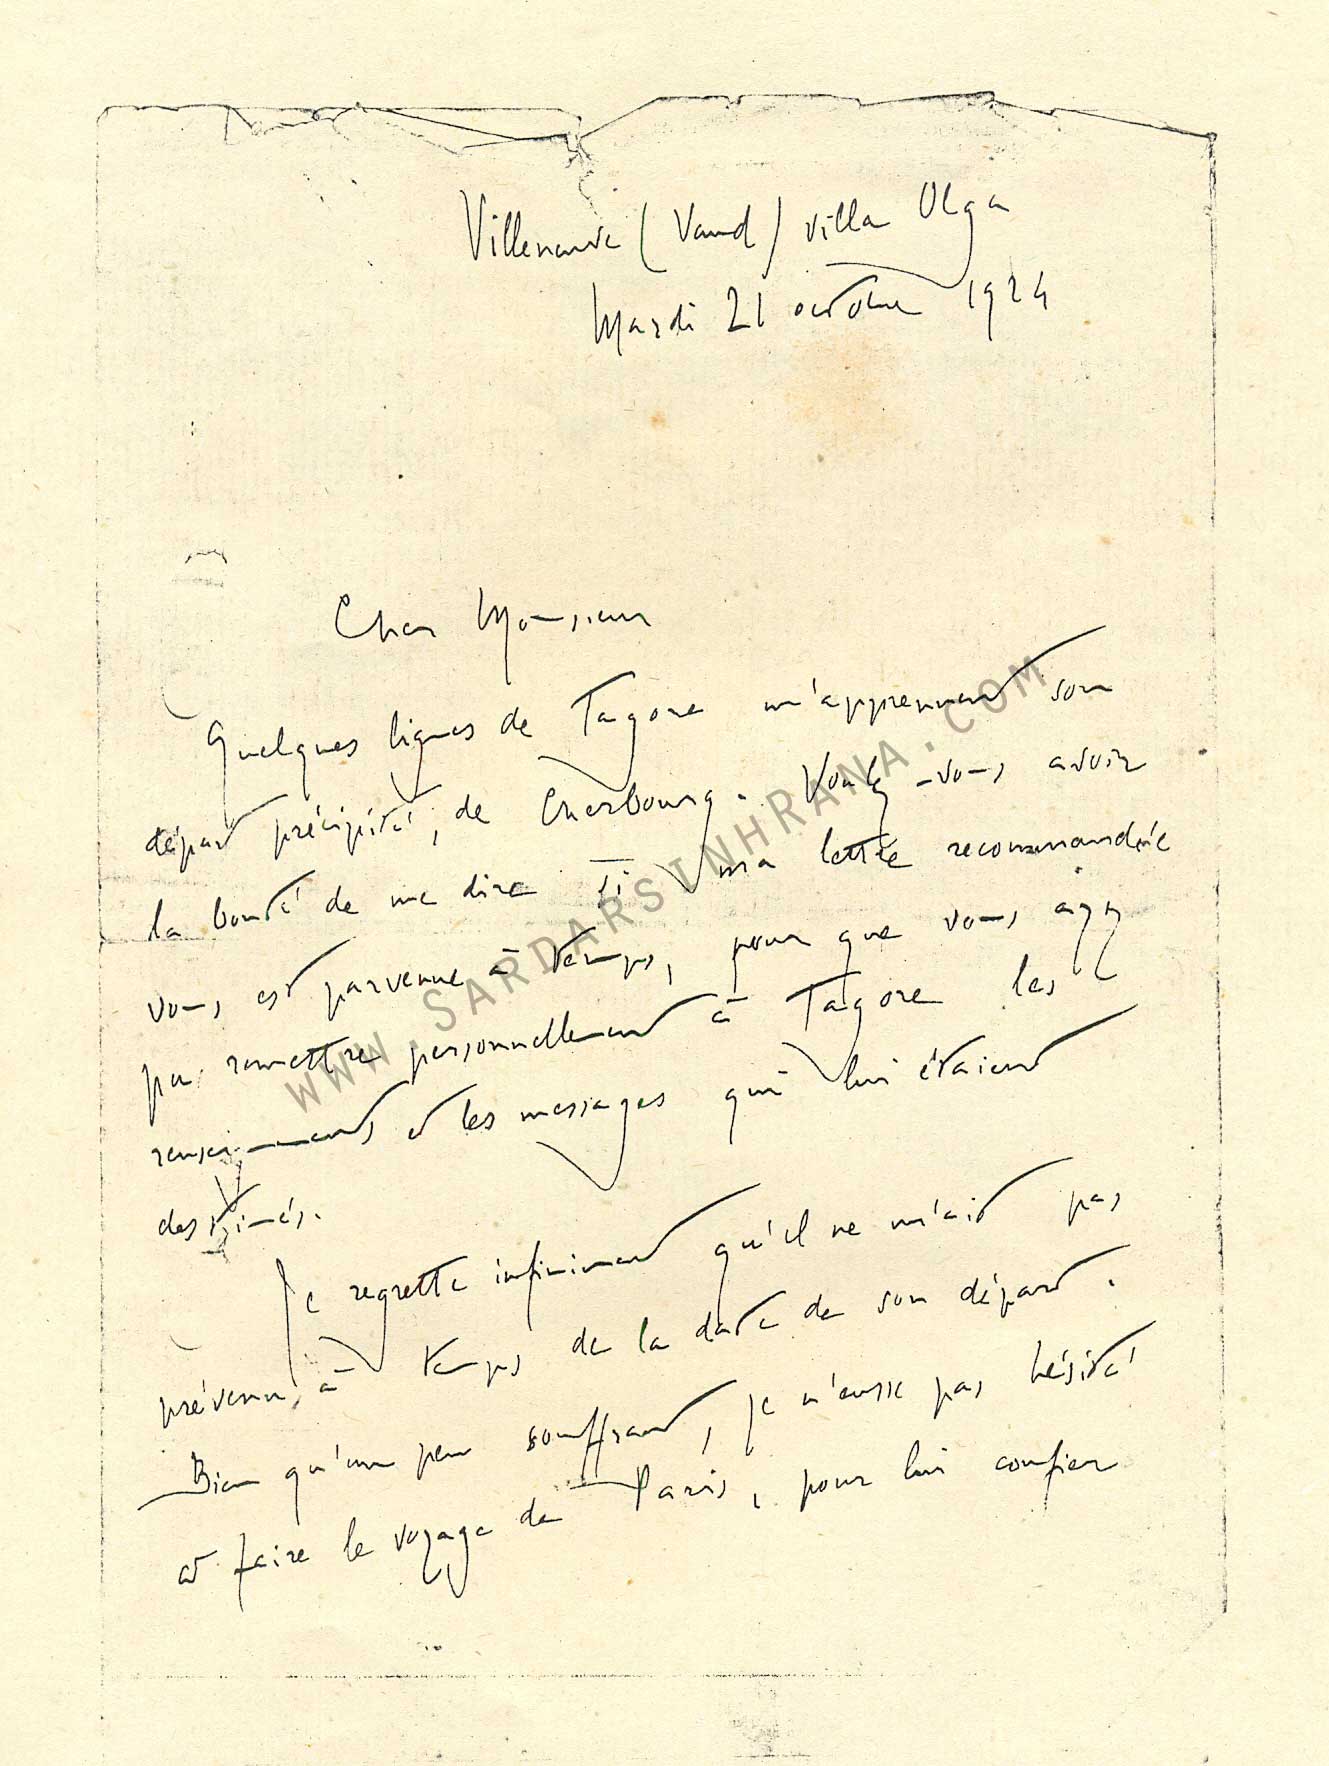 Villeneuve (Vaud) villa Olga
Mardi 21 octobre 1924
Cher Monsieur
Quelques lignes de Tagore m'apprennent son
départ précipité, de Cherbourg. Voulez-vous avoir
la bonté de me dire si ma lettre recommandée
vous est parvenue à temps, pour que vous ayez
pu remettre personnellement à Tagore les
renseignements et les messages qui lui étaient
destinés.
Je regrette infiniment qu'il ne m'ait pas
prévenu à temps de la date de son départ.
Bien qu'un peu souffrant, je n'eusse pas hésité
à faire le voyage de Paris, pour lui confier
WWW.SARDARSINHRANA.COM